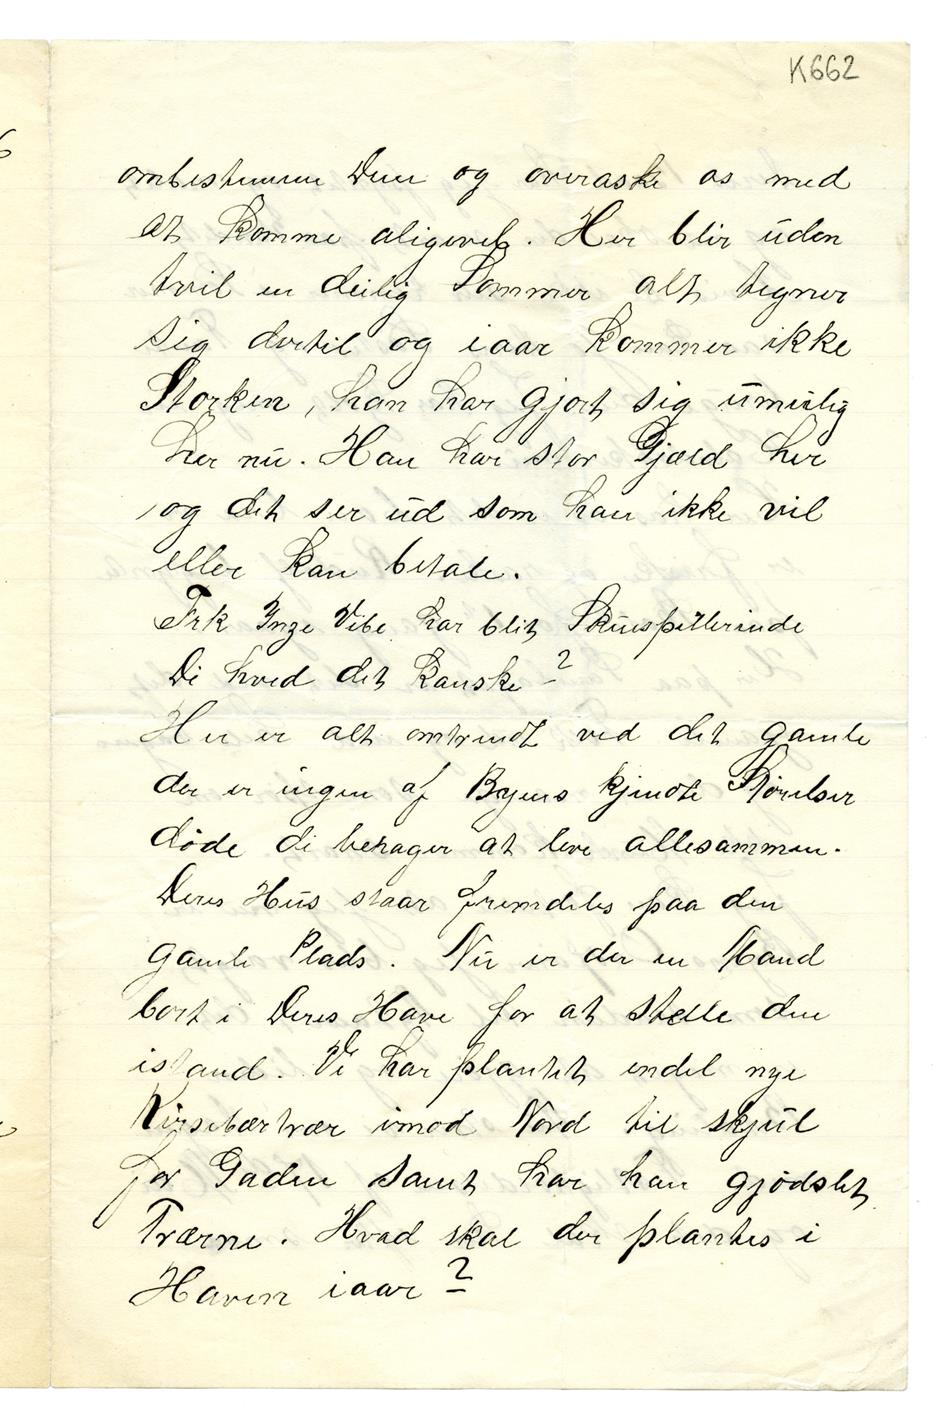 K662
ombestemme Dem og overaske os med
at komme aligevel. Her blir uden
tvil en deilig Sommer alt tegner
sig dertil og iaar kommer ikke
Storken, han har gjort sig umulig
her nu. Han har stor Gjæld her
og det ser ud som han ikke vil
eller kan betale.
Frk Inge Vibe har blit Skuespillerinde
Di hved det kanske?
Her er alt omtrindt ved det gamle
der er ingen af Byens kjendte Størelser
døde di behager at leve allesammen.
Deres Hus staar fremdeles paa den
gamle Plads. Nu er der en Mand
bort i Deres Have for at stelle den
istand. Vi har plantet endel nye
Kirsebærtrær imod Nord til skjul
for Gaden samt har han gjødslet
Trærne. Hvad skal der plantes i
Haven iaar?